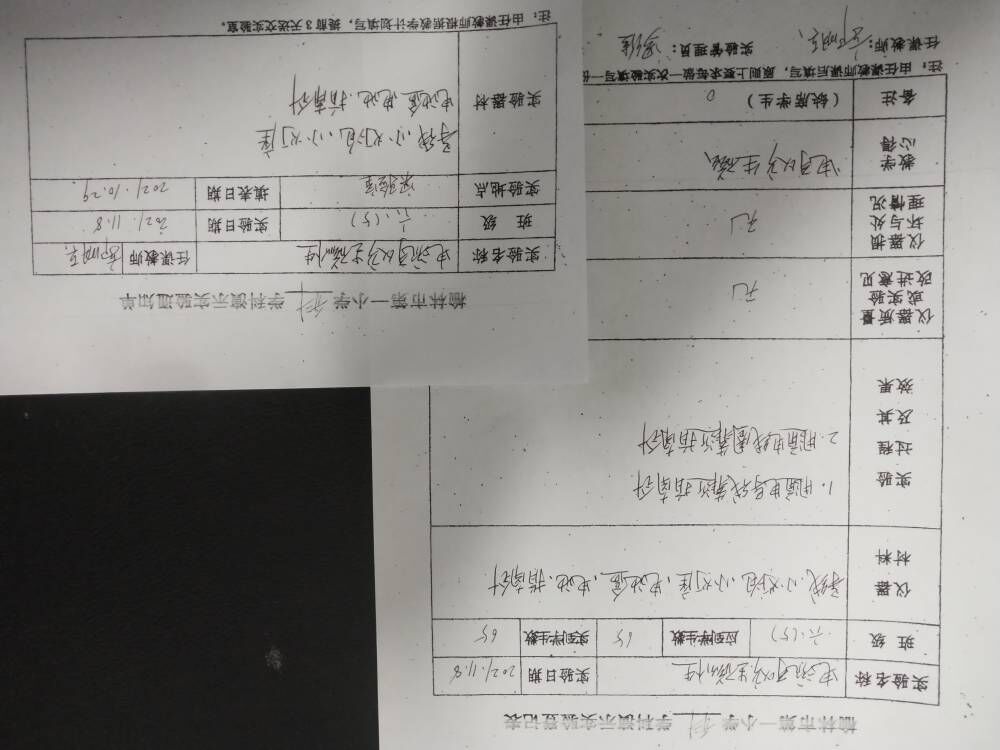 榆林市第一小学 科 学科演示实验通知单
实验名称 电流可以产生磁性 任课教师
班 级 六.(5) 实验日期 2021.11.8
实验地点 实验室 填表日期 2021.10.29
实验器材 导线.小灯泡.小灯座
电池盒.电池.指南针
注：由任课教师根据教学计划填写，提前3天送交实验室。
榆林市第一小学 科 学科演示实验登记表
实验名称 电流可以产生磁性 实验日期 2021.11.8
班 级 六.(5) 应到学生数 65 实到学生数 65
仪器
材料
导线.小灯泡.小灯座.电池盒.电池.指南针
实验
过程
及其
效果
1.用通电导线靠近指南针
2.用通电线圈靠近指南针
仪器质量
或实验
改进意见
无
仪器损
坏与处
理情况
无
教学
心得
电可以产生磁
备注 （缺席学生） 0
注：由任课教师课后填写，原则上要求每做一次实验填写一份
任课教师： 实验管理员：